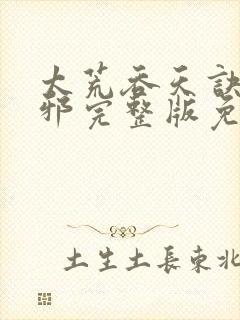 大荒吞天訣
邪完整版免
土生土長東北